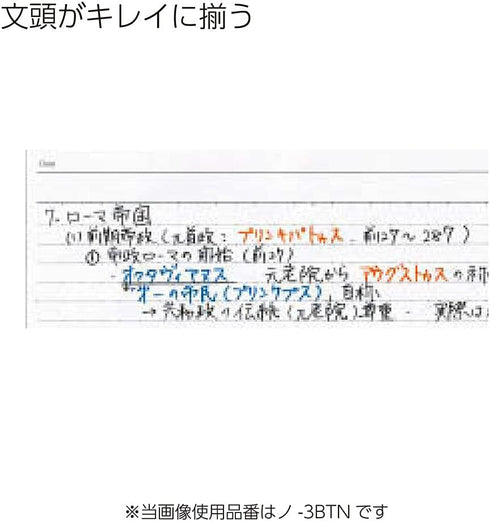 文頭がキレイに揃う
7. ローマ帝国
(1) 前期帝政 (元首政: プリンキパトゥス 前27〜287)
① 帝政ローマの開始 (前27)
・オクタヴィアヌス 元老院から アウグストゥス の称
"第一の市民 (プリンケプス)" 自称
→ 共和政の伝統 (元老院) 尊重 ・ 実際は
※当画像使用品番はノ-3BTNです